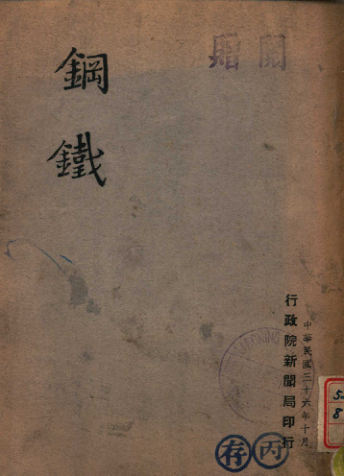 鋼鐵
中華民國三十六年十月
行政院新聞局印行
丙
存